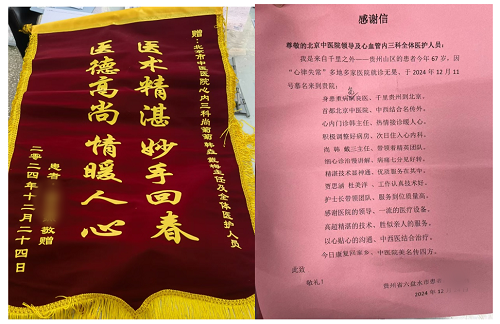 赠：北京市中医医院心内三科尚菊菊韩垚戴梅主任及全体医护人员
医术精湛 妙手回春
医德高尚 情暖人心
患者 敬赠
二零二四年十二月二十四日
感谢信
尊敬的北京中医院领导及心血管内三科全体医护人员：
我是来自千里之外——贵州山区的患者今年 67 岁，因
“心律失常”多地多家医院就诊无果，于 2024 年 12 月 11
号慕名来到贵院：
身患重病觅良医，千里贵州到北京，
首都北京中医院，中西结合名传外。
心内门诊韩主任，热情接诊暖人心，
积极调整好病房，次日住入心内科。
尚 韩 戴三主任，带领着精英团队，
细心诊治慎讲解，病痛七分见好转。
精湛技术显神通，优质服务在其中。
贾思涵 杜美洋，工作认真技术好。
护士长带领团队，服务到位质量高。
感谢医院的领导，一流的医疗设备。
高超精湛的技术，胜似亲人的服务。
以心贴心的沟通，中西医结合治疗。
今日康复回家乡，中医院美名传四方。
此致
敬礼！
贵州省六盘水市患者：
2024 年 12